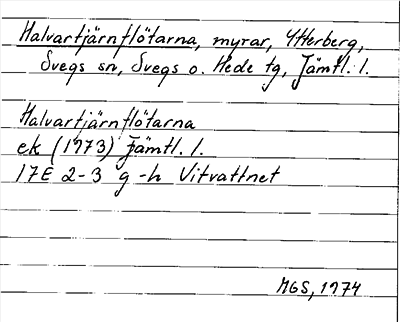 Halvartjärnflötarna, myrar, Ytterberg,
Svegs sn, Svegs o. Hede tg, Jämtl. l.
Halvartjärnflötarna
ek (1973) Jämtl. l.
17E 2-3 g-h Vitvattnet
MGS, 1974